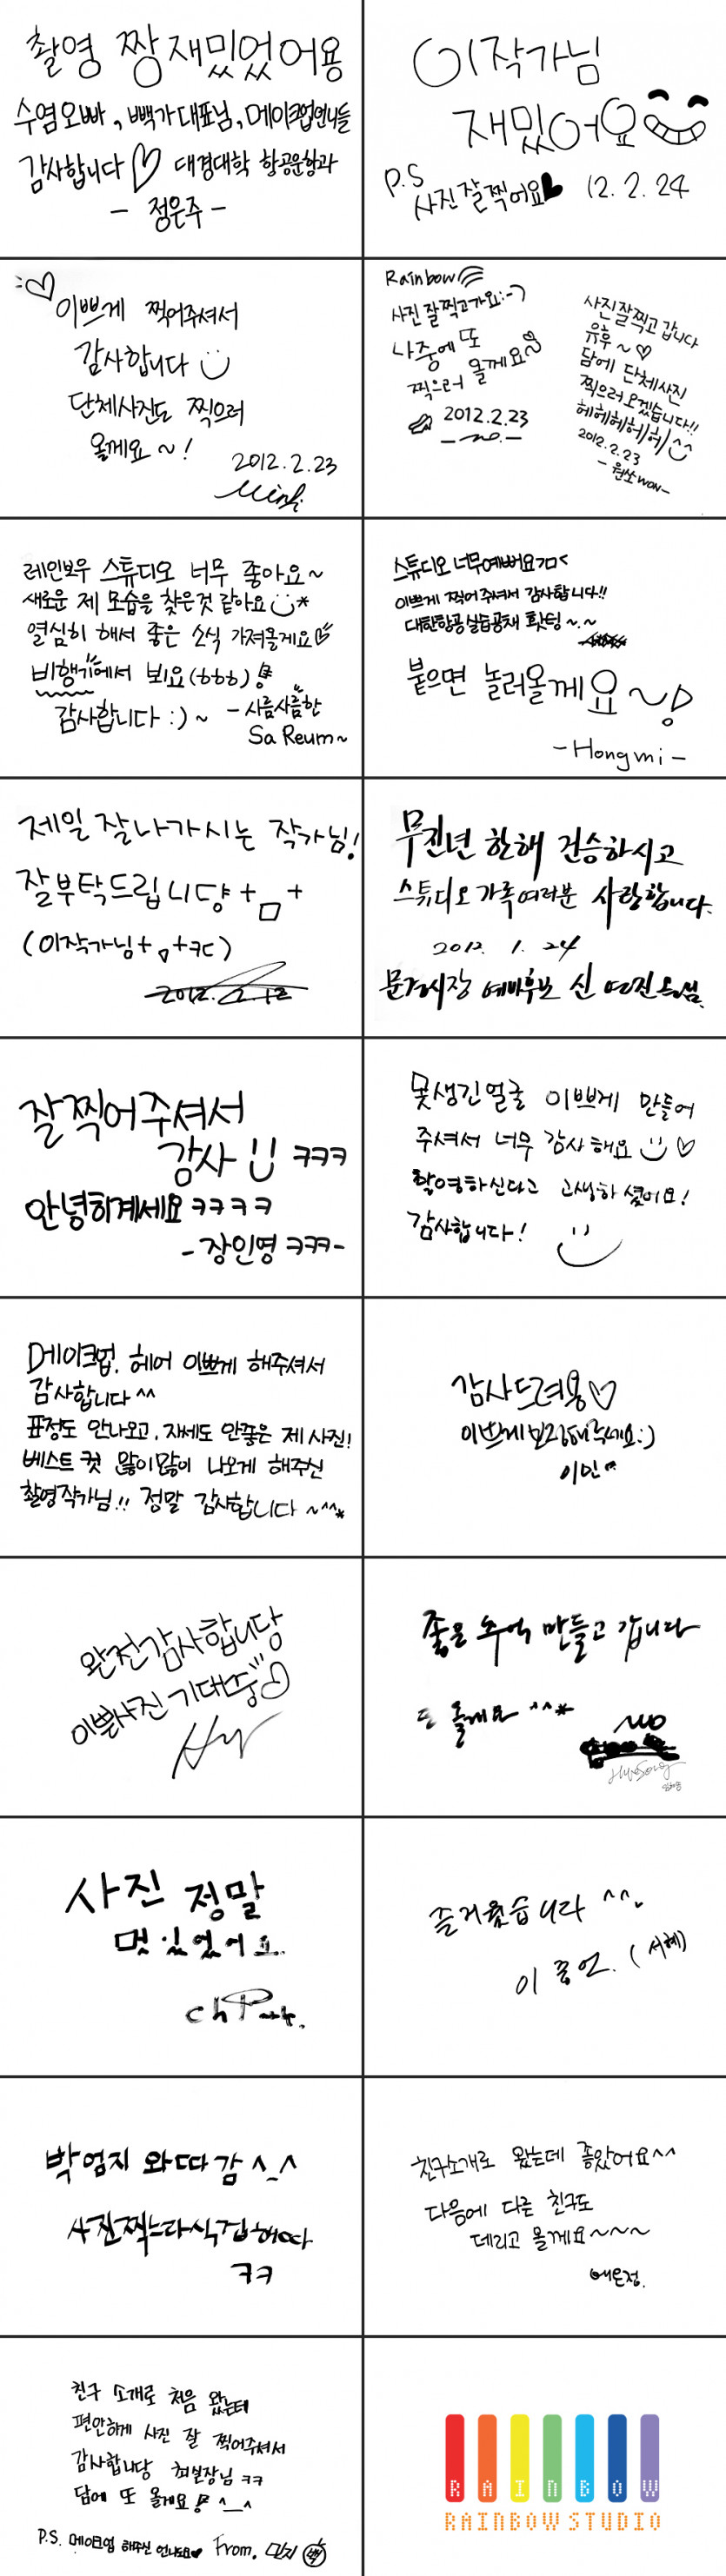 촬영 짱 재밌었어용
수염오빠, 빽가대표님, 메이크업언니들
감사합니다 대경대학 항공운항과
- 정은주 -
이작가님
재밌어요
P.S
사진잘찍어요 12. 2. 24
이쁘게 찍어주셔서
감사합니다
단체사진도 찍으러
올게요~!
2012. 2. 23
Minki
Rainbow
사진 잘찍고가요:-)
나중에 또
찍으러 올게요
2012.2.23
사진잘찍고 갑니다
유후~
담에 단체사진
찍으러오겠습니다!!
헤헤헤헤헤
2012.2.23
레인보우 스튜디오 너무 좋아요~
새로운 제 모습을 찾은것 같아요 *
열심히 해서 좋은 소식 가져올게요
비행기에서 뵈요(ㅎㅎㅎ)
감사합니다 :)~ - 사름사름한
Sa Reum~
스튜디오 너무예뻐요ㄱㅁ<
이쁘게 찍어주셔서 감사합니다!!
대한항공실습공채 홧팅~.~
붙으면 놀러올께요~!
- Hongmi -
제일 잘나가시는 작가님!
잘부탁드립니당+ㅁ+
(이작가님+ㅁ+ㅋㄷ)
2012. 2. 12
무진년 한해 건승하시고
스튜디오가족여러분 사랑합니다.
2012. 1. 24
문경시장 예비후보 신
잘찍어주셔서
감사 ㅋㅋㅋ
안녕히계세요ㅋㅋㅋㅋ
- 장인영ㅋㅋㅋ-
못생긴얼굴 이쁘게 만들어
주셔서 너무 감사해요
촬영하신다고 고생하셨어요!
감사합니다!
메이크업, 헤어 이쁘게 해주셔서
감사합니다^^
표정도 안나오고, 자세도 안좋은 제 사진!
베스트 컷 많이많이 나오게 해주신
촬영작가님!! 정말 감사합니다~^^*
감사드려용♡
이쁘게보정해주세요:)
이민
완전감사합니당
이쁜사진 기대중
좋은 추억 만들고 갑니다
또 올게요 ^^*
HyoSong
사진 정말
멋있었어요
즐거웠습니다 ^^
이 중언. (서혜)
박엄지 와따감^_^
사진찍느라식겁해따
ㅋㅋ
친구소개로 왔는데 좋았어요^^
다음에 다른 친구도
데리고 올께요~~~
배은정.
친구 소개로 처음 왔는데
편안하게 사진 잘 찍어주셔서
감사합니당 최실장님 ㅋㅋ
담에 또 올게요! ^_^
P.S. 메이크업 해주신 언니도요♥ From. 민지
RAINBOW
RAINBOW STUDIO